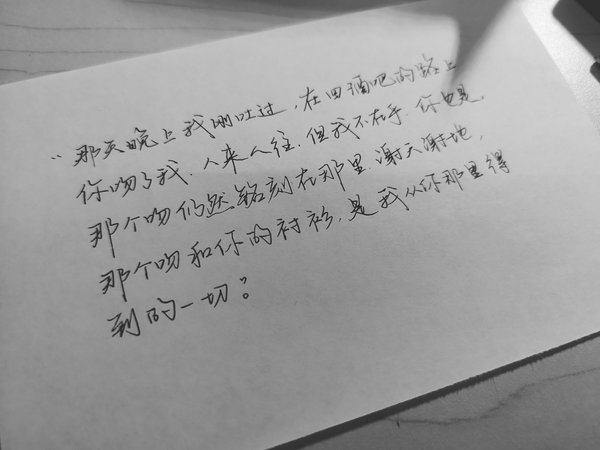 “那天晚上我刚吐过，在回酒吧的路上
你吻了我．人来人往．但我不在乎．你也是．
那个吻仍然铭刻在那里．谢天谢地，
那个吻和你的衬衫．是我从你那里得
到的一切。